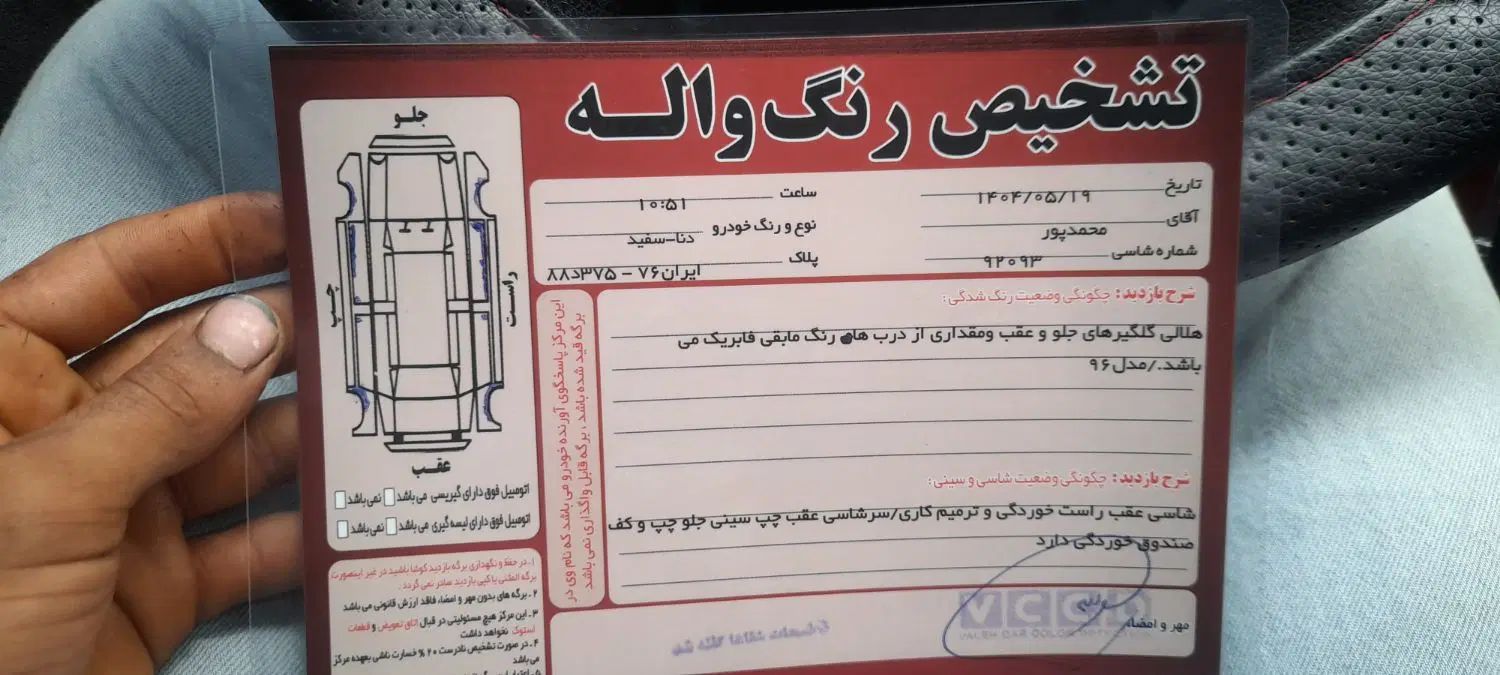 تشخیص رنگ واله
تاریخ ۱۴۰۴/۰۵/۱۹
ساعت ۱۰:۵۱
آقای محمدپور
نوع و رنگ خودرو دنا-سفید
شماره شاسی ۹۲۰۹۳
پلاک ایران۷۶ - ۳۷۵د۸۸
شرح بازدید: چگونگی وضعیت رنگ شدگی:
هلالی گلگیرهای جلو و عقب ومقداری از درب های رنگ مابقی فابریک می
باشد./مدل۹۶
شرح بازدید: چگونگی وضعیت شاسی و سینی:
شاسی عقب راست خوردگی و ترمیم کاری/سرشاسی عقب چپ سینی جلو چپ و کف
صندوق خوردگی دارد
مهر و امضاء
VCCD
این مرکز پاسخگوی آورنده خودرو می باشد که نام وی در
برگه قید شده باشد، برگه قابل واگذاری نمی باشد
جلو
چپ
راست
عقب
اتومبیل فوق دارای گیریسی می باشد نمی باشد
اتومبیل فوق دارای لیسه گیری می باشد نمی باشد
۱-در حفظ و نگهداری برگه بازدید کوشا باشید در غیر اینصورت
برگه المثنی یا کپی بازدید صادر نمی گردد.
۲-برگه های بدون مهر و امضاء، فاقد ارزش قانونی می باشد
۳-این مرکز هیچ مسئولیتی در قبال اتاق تعویض و قطعات
استوک نخواهد داشت
۴-در صورت تشخیص نادرست ۲۰% خسارت ناشی بعهده مرکز
می باشد